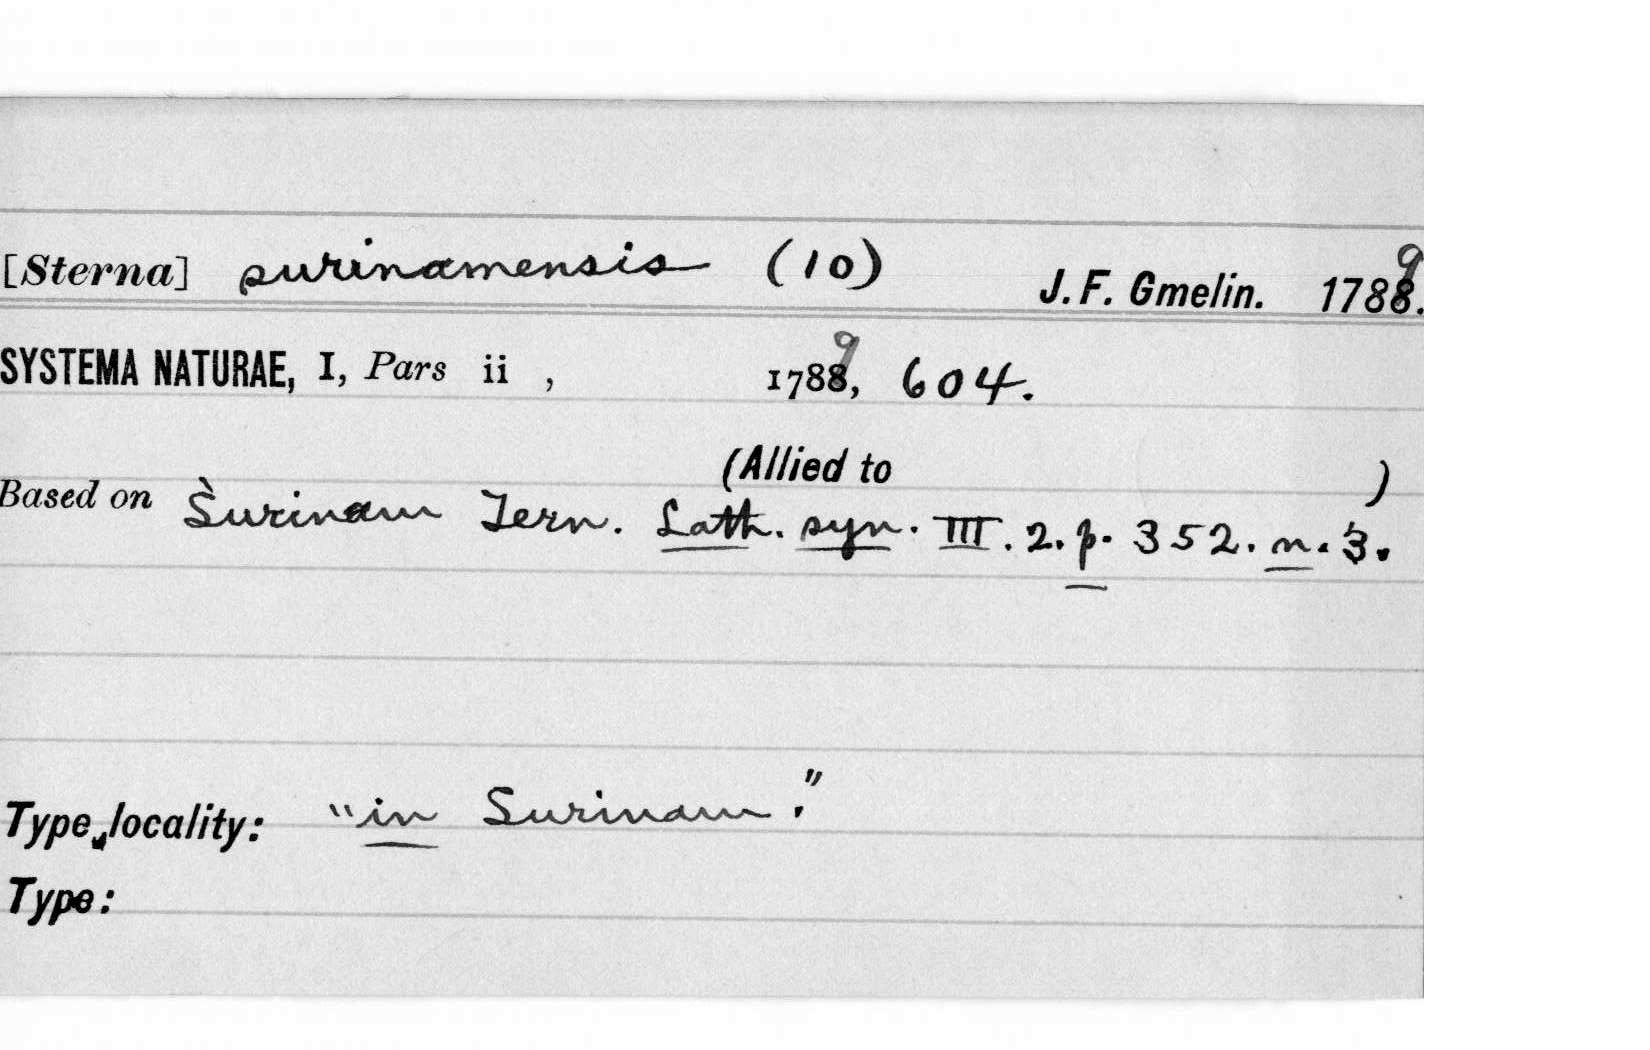 [Sterna] surinamensis (10) J. F. Gmelin. 1789.
SYSTEMA NATURAE, I, Pars ii , 1789, 604.
(Allied to )
Based on Surinam Tern. Lath. syn. III. 2. p. 352. n. 3.
Type locality: "in Surinam."
Type: